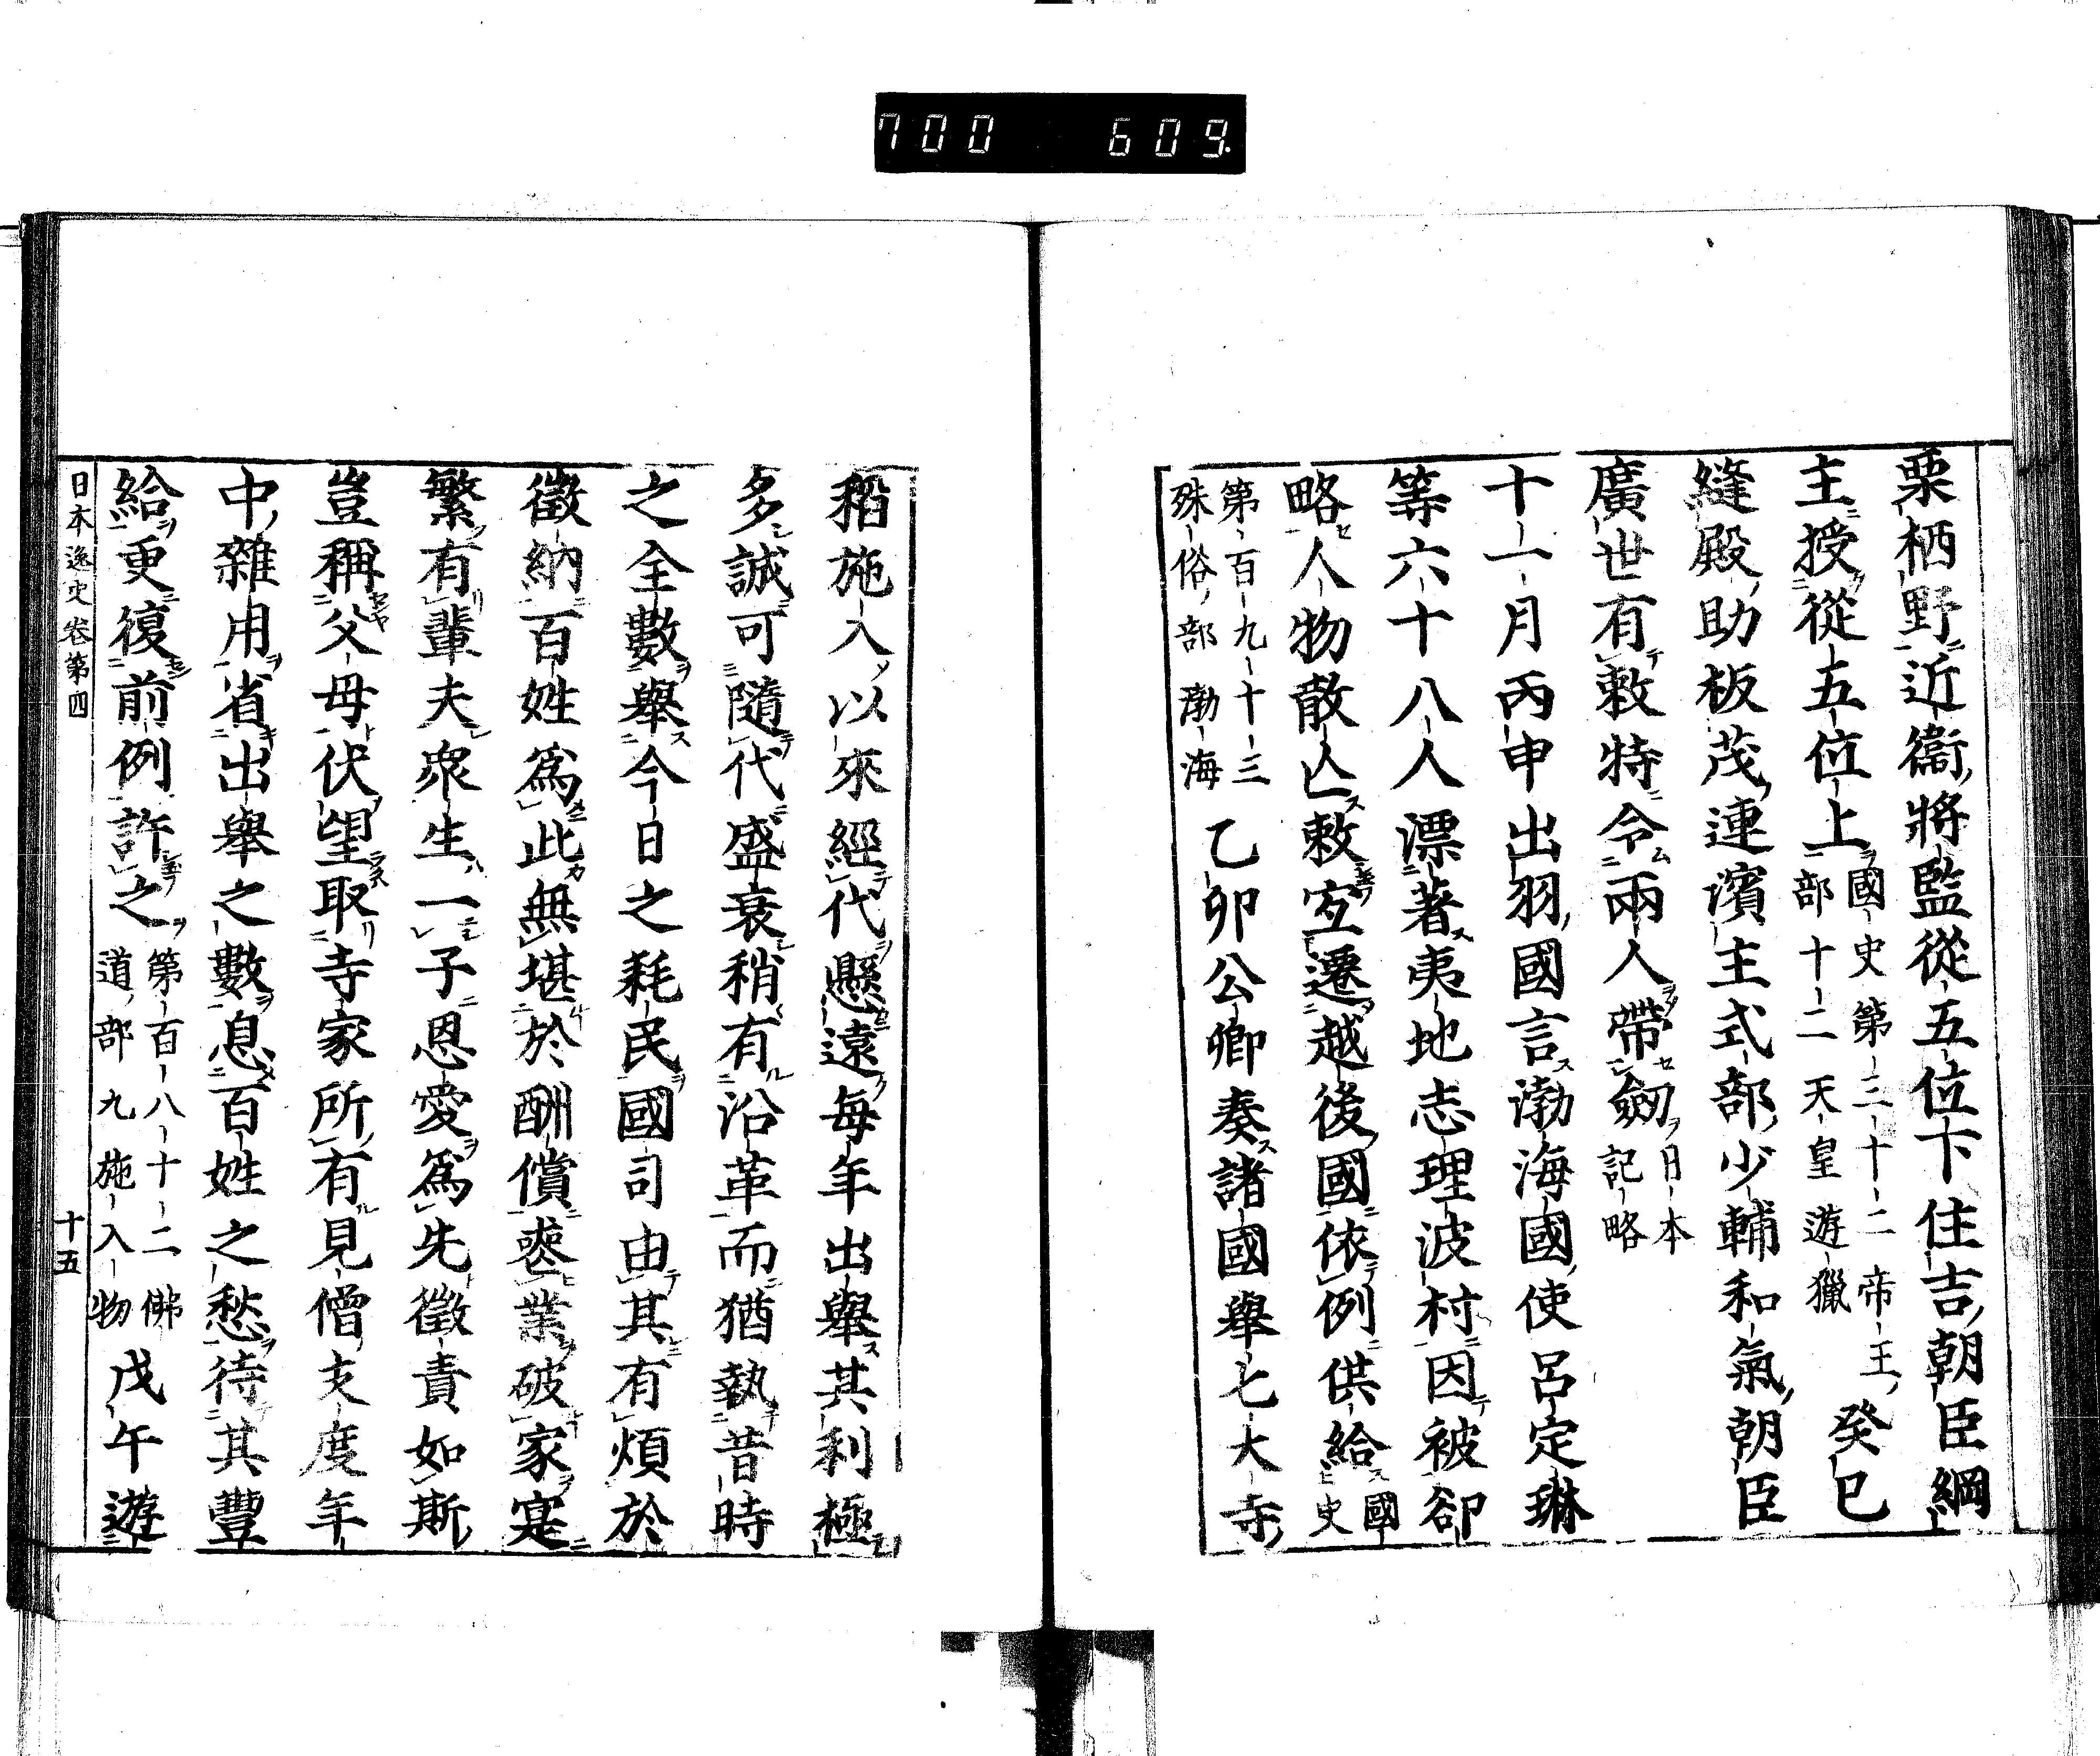 700 609
栗栖野近衞將監從五位下住吉朝臣綱
主授從五位上國史第三十二帝王
部十二天皇遊獵癸巳
縫殿助板茂連濱主式部少輔和氣朝臣
廣世有敕特令兩人帶劔日本
記略
十一月丙申出羽國言渤海國使呂定琳
等六十八人漂著夷地志理波村因被劫
略人物散亾敕宜遷越後國依例供給國史
第百九十三
殊俗部渤海乙卯公卿奏諸國舉七大寺
稻施入以來經代懸遠每年出舉其利極
多誠可隨代盛衰稍有沿革而猶執昔時
之全數舉今日之耗民國司由其有煩於
徵納百姓爲此無堪於酬償
業破家寔
繁有輩夫衆生一子恩愛爲先徵責如斯
豈稱父母伏望取寺家所有見僧支度年
中雜用省出舉之數息百姓之愁待其豐
給更復前例許之第百八十二佛
道部九施入物戊午遊
日本逸史卷第四
十五